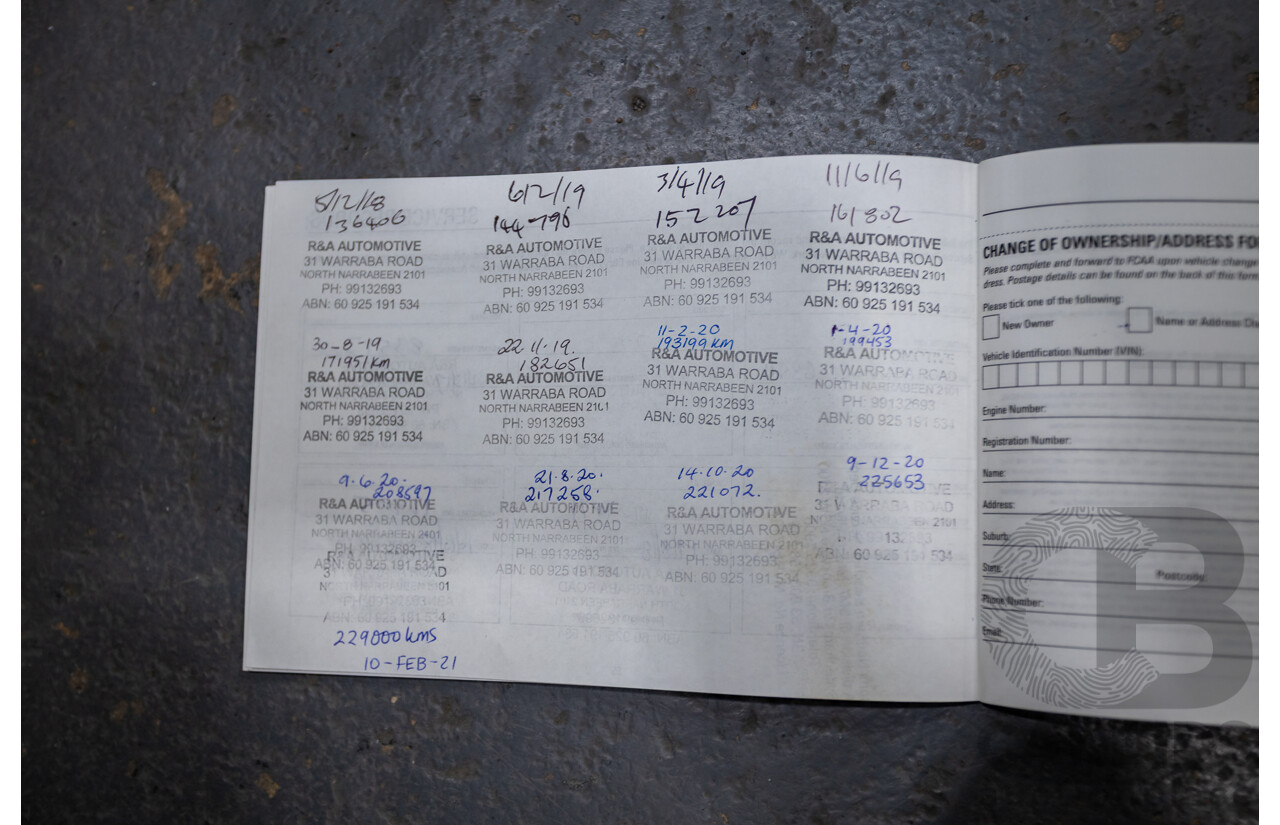 5/12/18
136406
R&A AUTOMOTIVE
31 WARRABA ROAD
NORTH NARRABEEN 2101
PH: 99132693
ABN: 60 925 191 534
6/2/19
144796
R&A AUTOMOTIVE
31 WARRABA ROAD
NORTH NARRABEEN 2101
PH: 99132693
ABN: 60 925 191 534
3/4/19
152207
R&A AUTOMOTIVE
31 WARRABA ROAD
NORTH NARRABEEN 2101
PH: 99132693
ABN: 60 925 191 534
11/6/19
161802
R&A AUTOMOTIVE
31 WARRABA ROAD
NORTH NARRABEEN 2101
PH: 99132693
ABN: 60 925 191 534
30-8-19
171951km
R&A AUTOMOTIVE
31 WARRABA ROAD
NORTH NARRABEEN 2101
PH: 99132693
ABN: 60 925 191 534
22.11.19.
182651
R&A AUTOMOTIVE
31 WARRABA ROAD
NORTH NARRABEEN 2101
PH: 99132693
ABN: 60 925 191 534
11-2-20
193199km
R&A AUTOMOTIVE
31 WARRABA ROAD
NORTH NARRABEEN 2101
PH: 99132693
ABN: 60 925 191 534
1-4-20
199453
R&A AUTOMOTIVE
31 WARRABA ROAD
NORTH NARRABEEN 2101
PH: 99132693
ABN: 60 925 191 534
9.6.20.
208597
R&A AUTOMOTIVE
31 WARRABA ROAD
NORTH NARRABEEN 2101
PH: 99132693
ABN: 60 925 191 534
21.8.20.
217258.
R&A AUTOMOTIVE
31 WARRABA ROAD
NORTH NARRABEEN 2101
PH: 99132693
ABN: 60 925 191 534
14.10.20
221072.
R&A AUTOMOTIVE
31 WARRABA ROAD
NORTH NARRABEEN 2101
PH: 99132693
ABN: 60 925 191 534
9-12-20
225653
R&A AUTOMOTIVE
31 WARRABA ROAD
2101
ABN: 60 925 191 534
R&A AUTOMOTIVE
ABN: 60 925 191 534
229000kms
10-FEB-21
CHANGE OF OWNERSHIP/ADDRESS
Please complete and forward to FCAA upon vehicle change
dress. Postage details can be found on the back of this form
Please tick one of the following:
New Owner
Name or Address
Vehicle Identification Number (VIN):
Engine Number:
Registration Number:
Name:
Address:
Suburb:
State:
Postcode:
Phone Number:
Email: